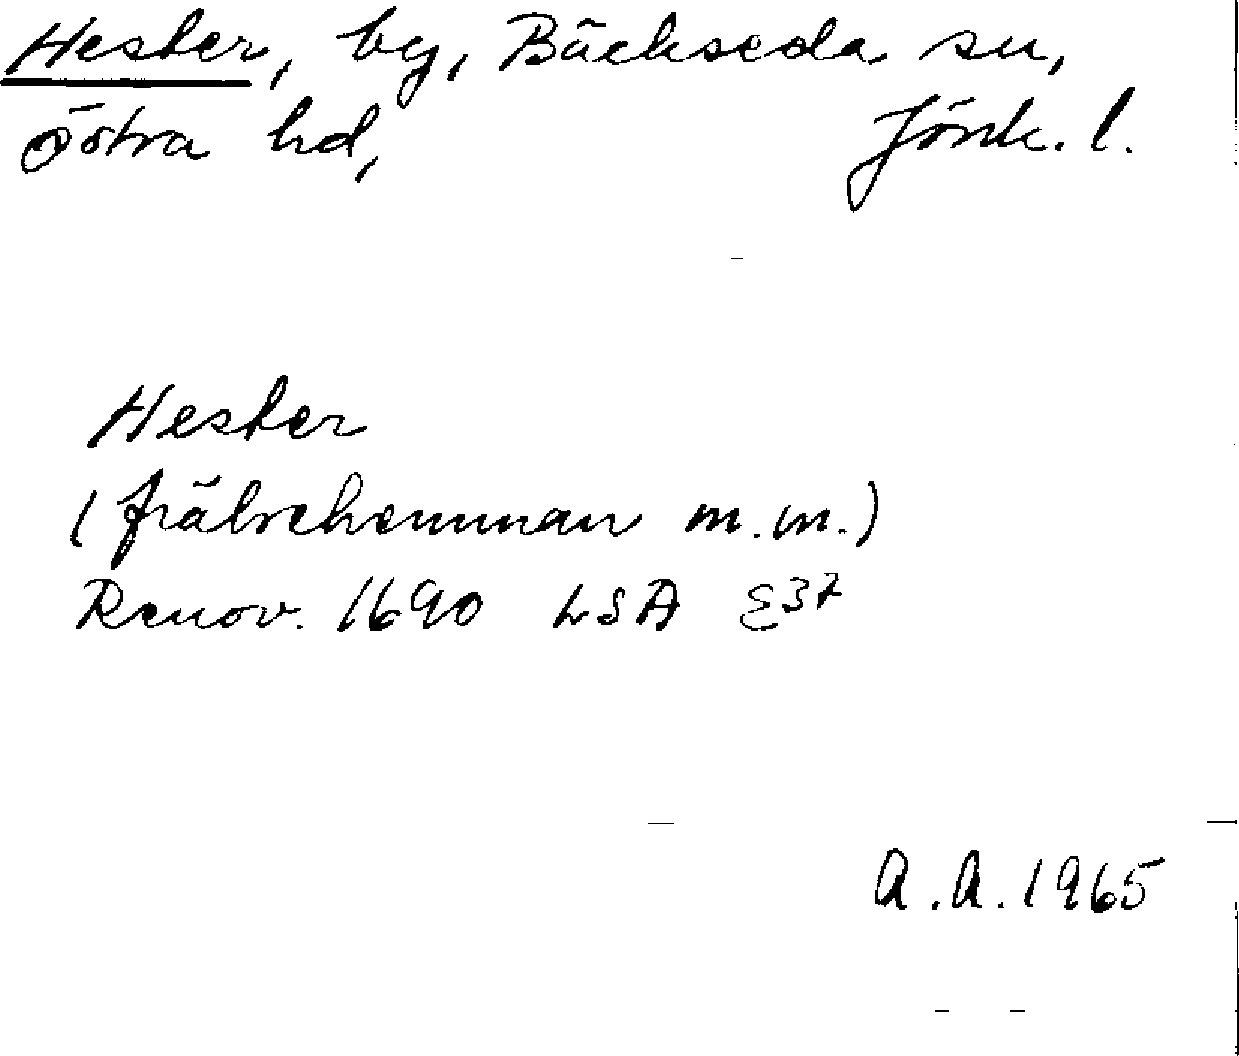 Hester, by, Bäckseda sn,
Östra hd, Jönk. l.
Hester
(frälsehemman m.m.)
Renov. 1690 LSA E37
A.A. 1965